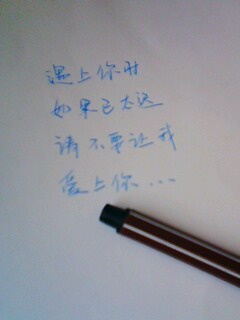 遇上你时
如果已太迟
请不要让我
爱上你...